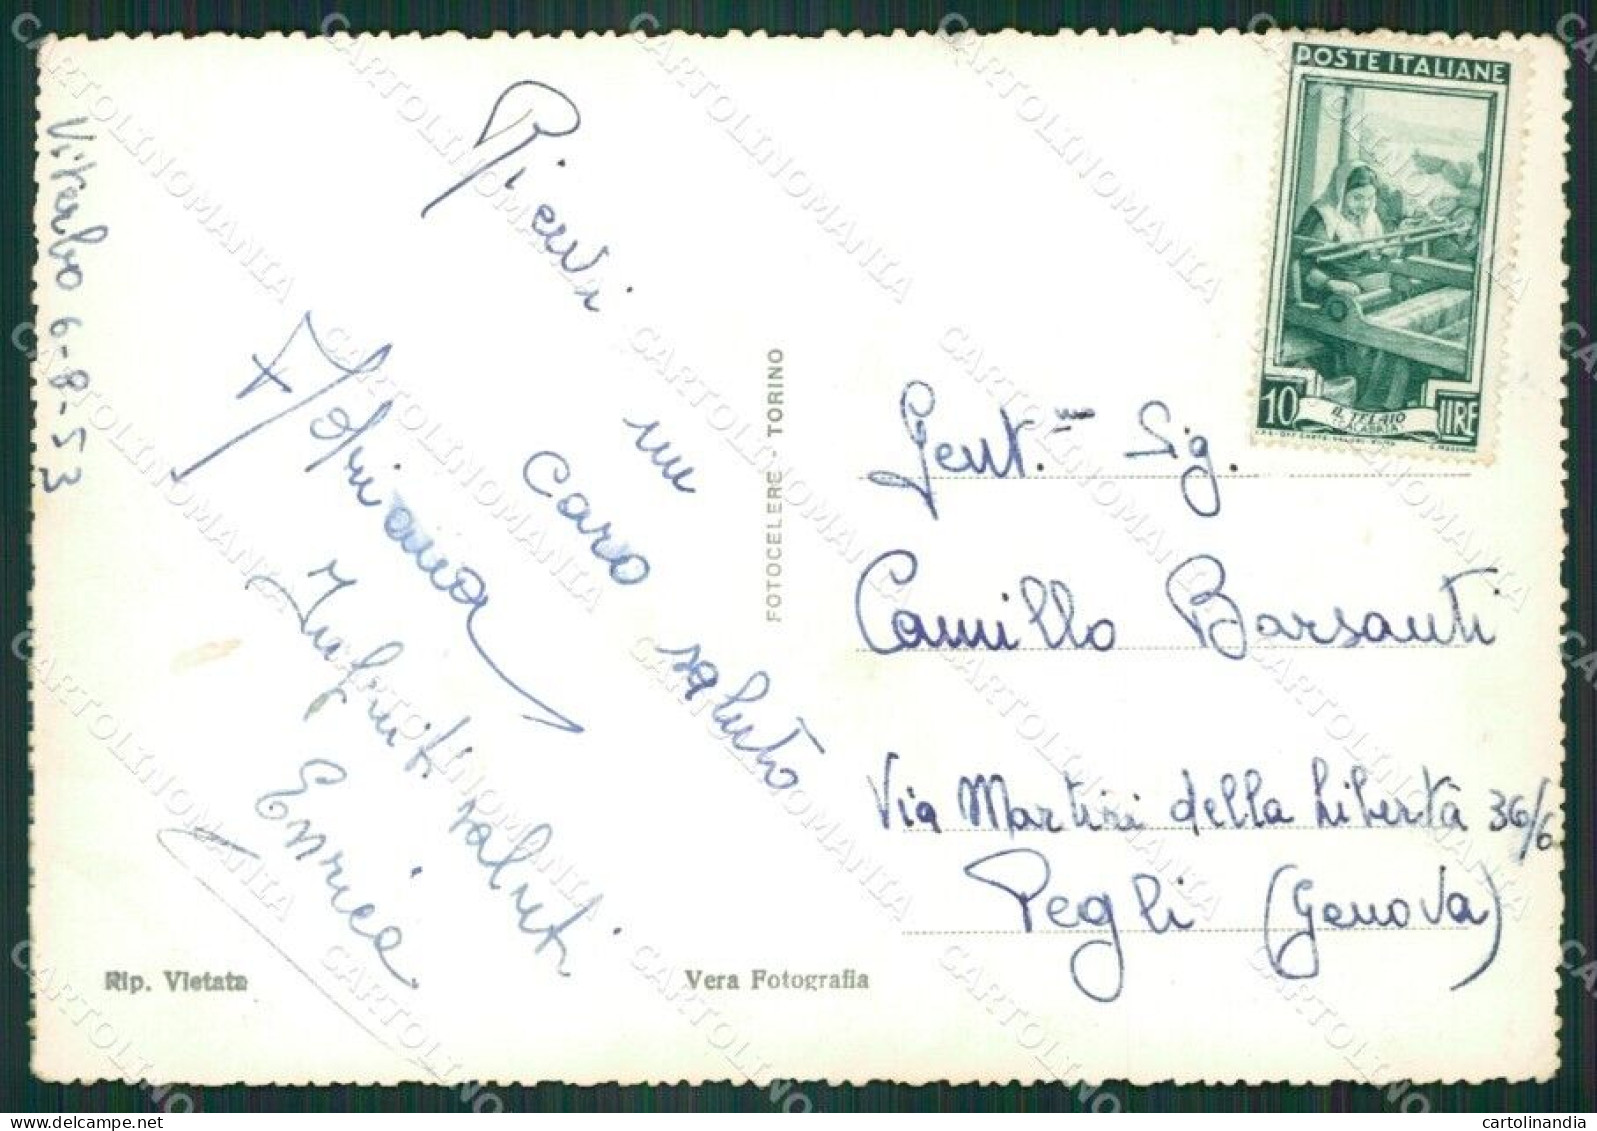 Viterbo 6-8-53
Ricevi
un
caro
saluto
Adriana
Infiniti saluti
Enrica
Rip. Vietata
Vera Fotografia
FOTOCELERE - TORINO
POSTE ITALIANE
10 LIRE
IL TELAIO
Gent.mo Sig.
Camillo Barsanti
Via Martiri della Libertà 36/6
Pegli (Genova)
CARTOLINOMANIA
cartolinandia